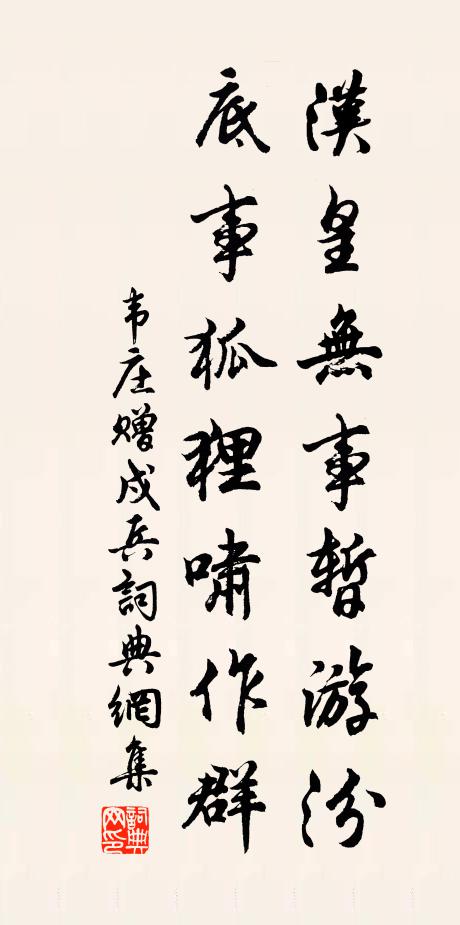 漢皇無事暫游汾
底事狐狸嘯作群
韦庄赠戍兵詞典網集
詞典网印